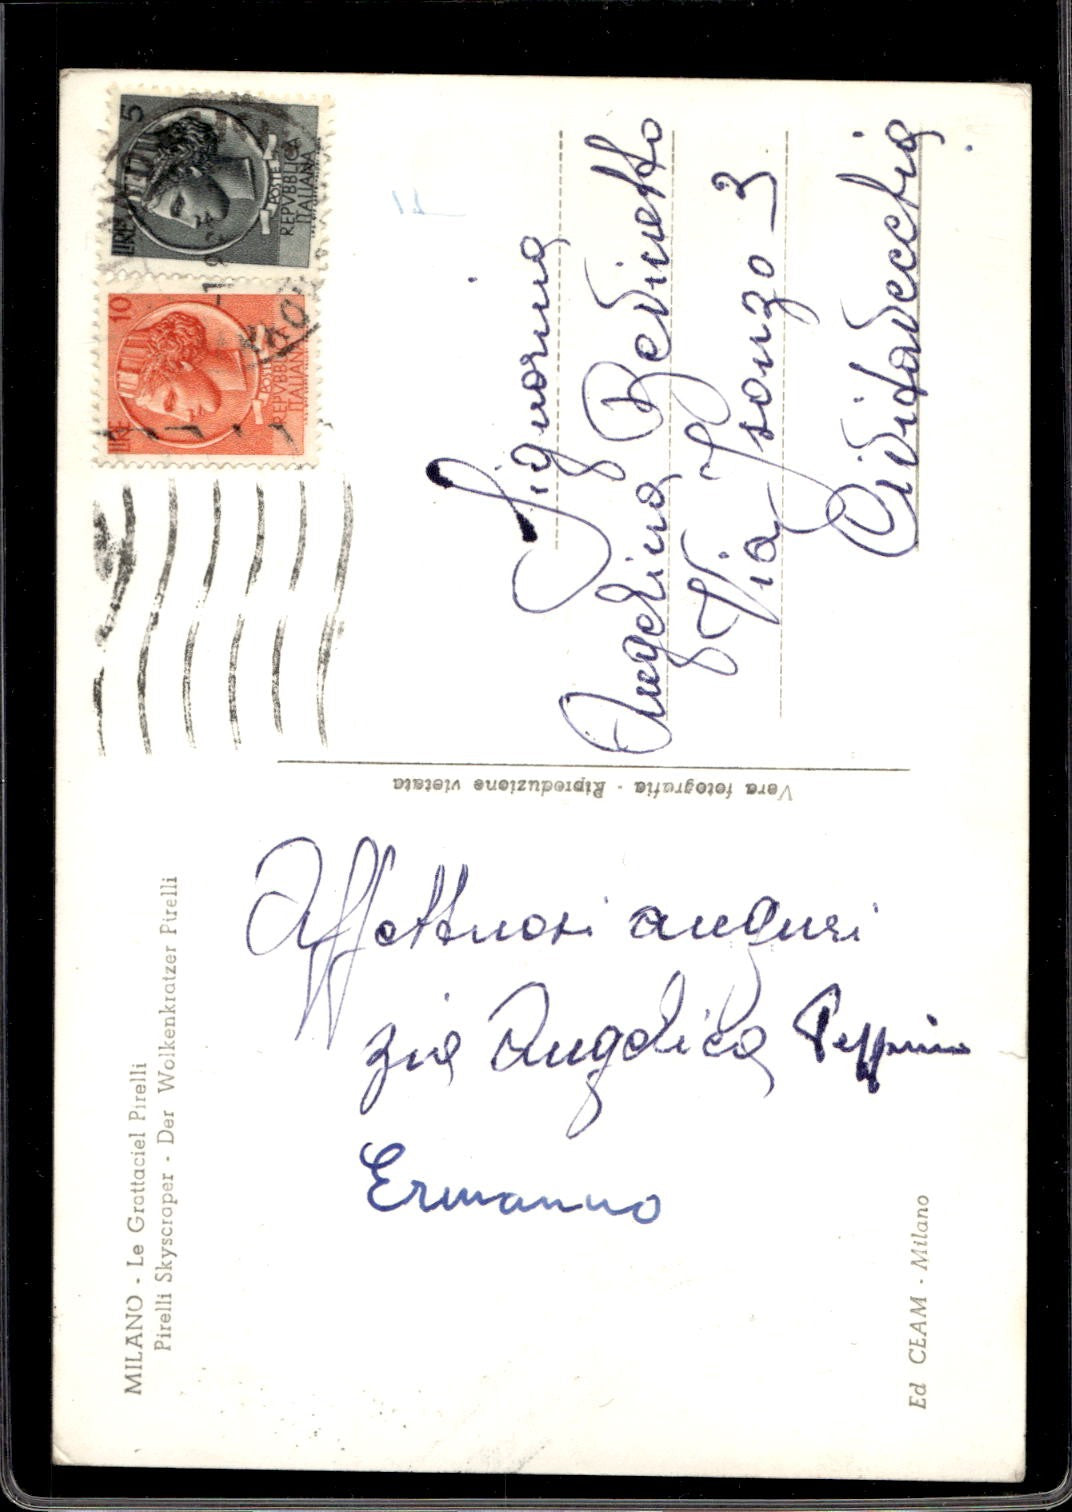 MILANO - Le Grattaciel Pirelli
Pirelli Skyscraper - Der Wolkenkratzer Pirelli
Affettuosi auguri
zia Angelica Peppino
Ermanno
Ed CEAM - Milano
Vera fotografia - Riproduzione vietata
LIRE 5
POSTE
REPVBBLICA
ITALIANA
LIRE 10
POSTE
REPVBBLICA
ITALIANA
Signorina
Angelina Bedinetto
Via Isonzo 3
Cividavecchia